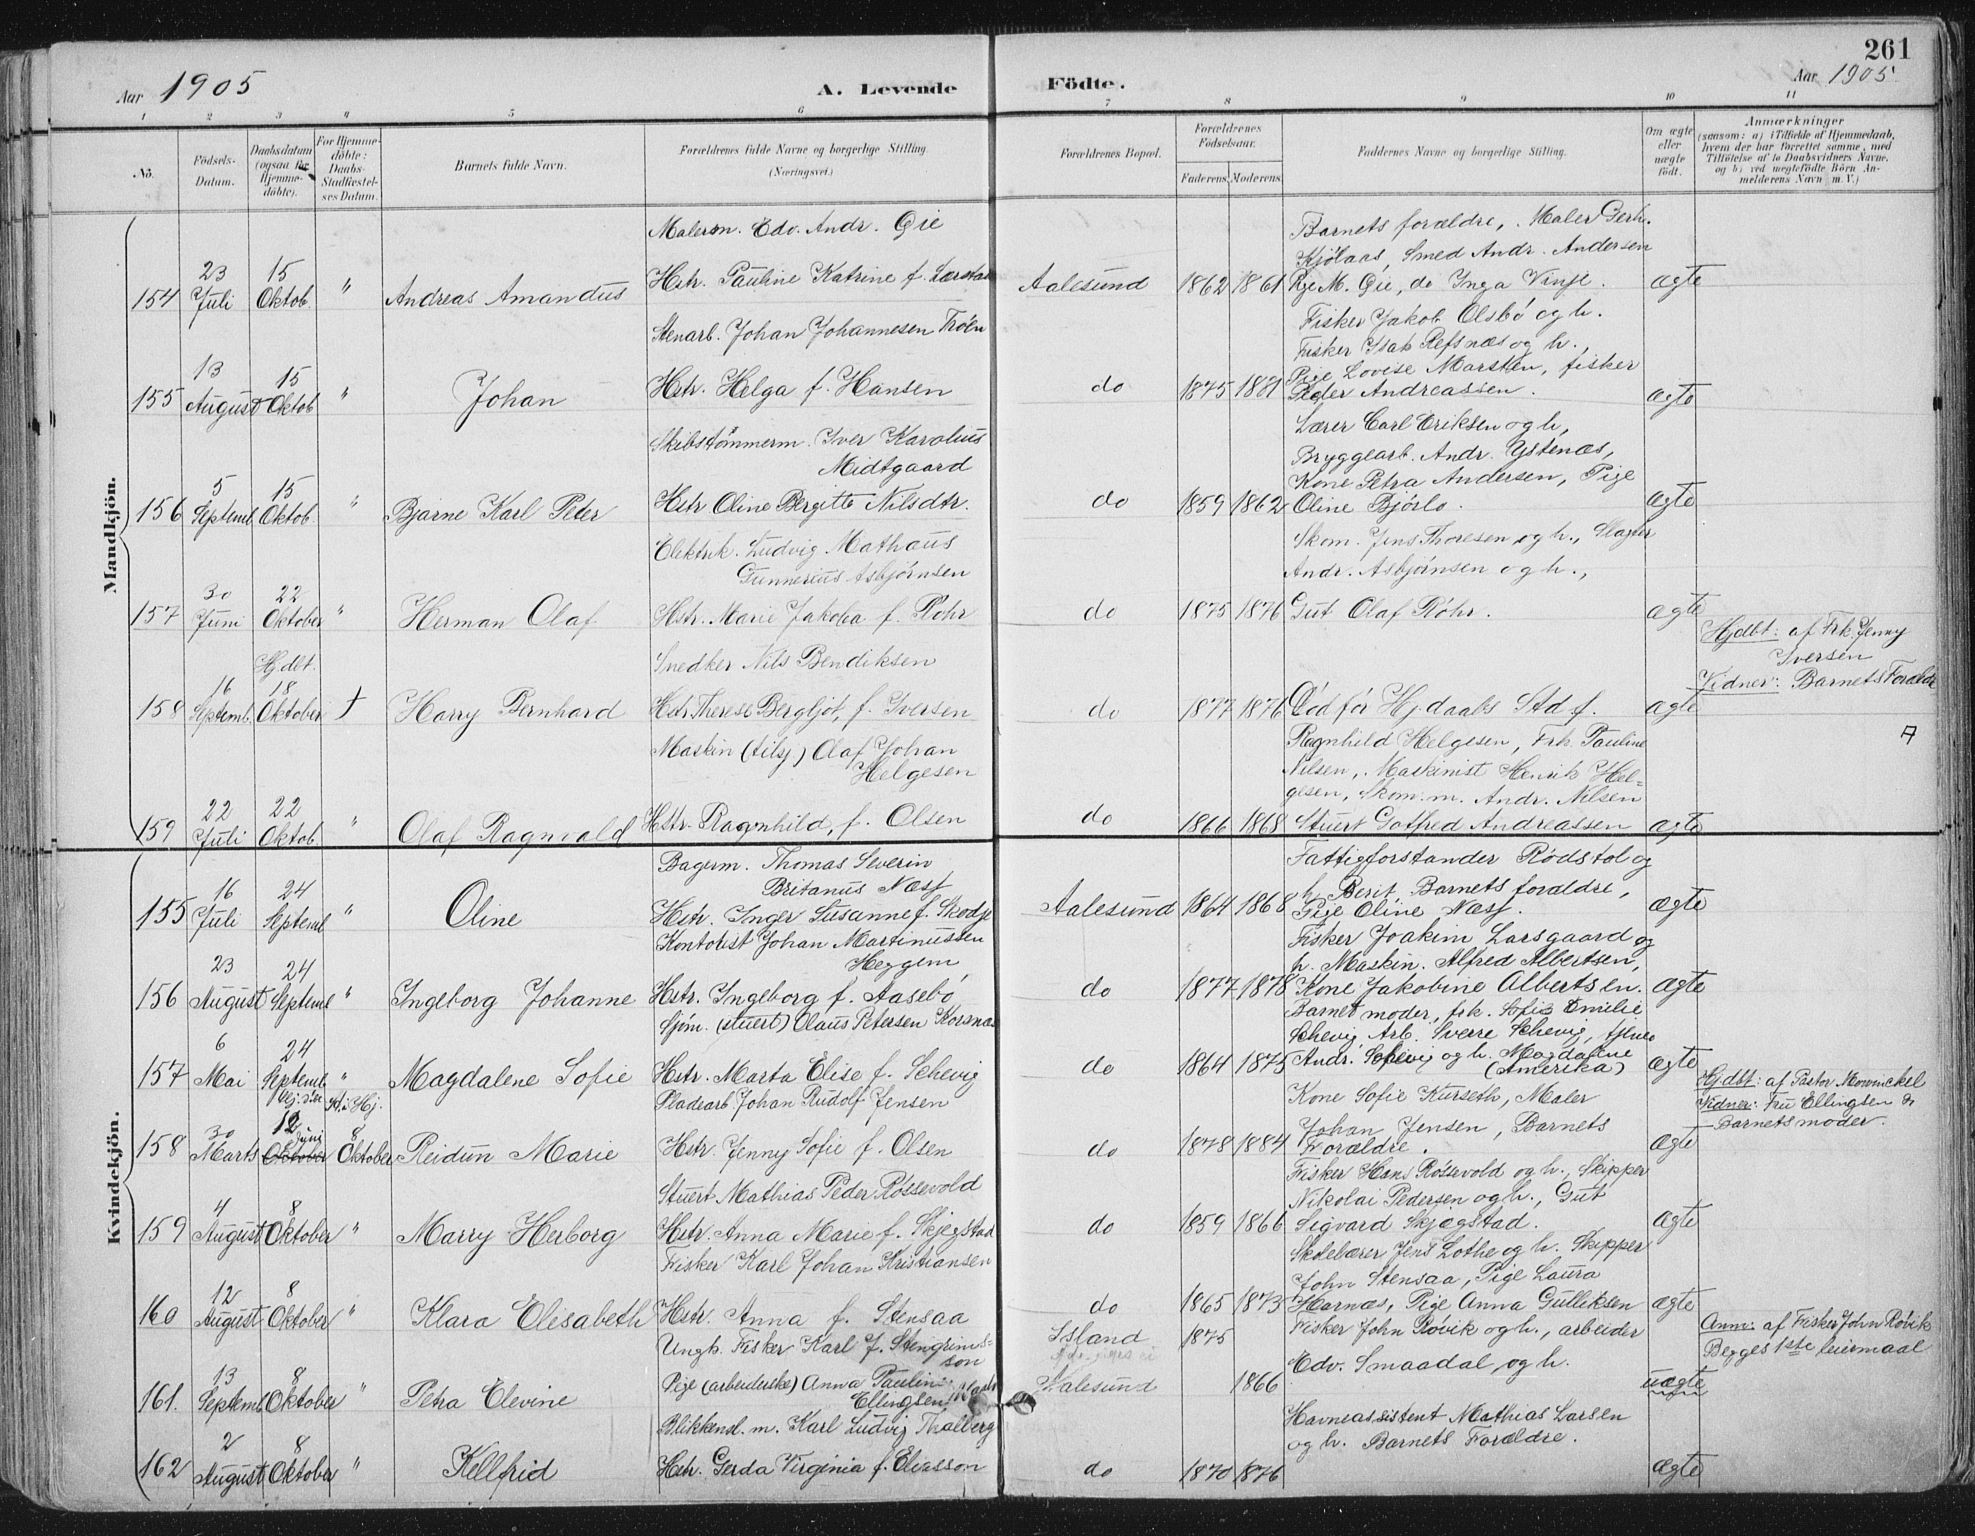 261
Aar 1905
A. Levende
Födte.
Aar 1905
1 2 3 4 5 6 7 8 9 10 11
No.
Födsels-
Datum.
Daabsdatum
(ogsaa for
Hjemme-
döbte).
For Hjemme-
döbte:
Daabs-
Stadfæstel-
ses Datum.
Barnets fulde Navn.
Forældrenes fulde Navne og borgerlige Stilling.
(Næringsvei.)
Forældrenes Bopæl.
Forældrenes
Födselsaar.
Faderens. Moderens.
Faddernes Navne og borgerlige Stilling.
Om ægte
eller
uægte
födt.
Anmærkninger
(saasom: a) i Tilfælde af Hjemmedaab,
hvem der har forrettet samme, med
Tilföielse af to Daabsvidners Navne,
og b) ved uegtefödte Börn An-
melderens Navn m. V.)
Mandkjön.
Malerm. Edv. Andr. Gie
154 23 Juli 15 Oktob. " Andreas Amandus Hstr. Pauline Katrine f. Aalesund 1862 1861
Barnets forældre, Maler Gerh.
Kjølaas, Smed Andr. Andersen
Pige M. Gie, do Inga Vinje. ægte
Stenarb. Johan Johannesen Trøen
155 13 August 15 Oktob " Johan Hstr. Helga f. Hansen do 1875 1881
Fisker Jakob Olsbö og h.
Fisker Isak Refsnæs og h.,
Pige Lovise Marsten, fisker
Peder Andreassen. ægte
Skibstömmerm. Iver Karolius
Midtgaard
156 5 Septemb 15 Oktob " Bjarne Karl Peter Hstr Oline Bergitte Nilsdtr. do 1859 1862
Lærer Carl Eriksen og h,
Bryggearb. Andr. Ystenæs,
Kone Petra Andersen, Pige
Oline Bjørlo. ægte
Elektrik. Ludvig Mathaus
Gunnerius Asbjørnsen
157 30 Juni 22 Oktober " Herman Olaf Hstr. Marie Jakoba f. Røhr do 1875 1876
Skom. Jens Thoresen og h., Slagter
Andr. Asbjørnsen og h.,
Gut Olaf Røhr. ægte
Snedker Nils Bendiksen
158 16 Septemb. Hj.dbt. 18 Oktober † Harry Bernhard Hstr Therese Bergljot, f. Iversen do 1877 1876 Död før Hj.daabs Stdf. ægte
Hjdbt: af Frk. Jenny
Iversen
Vidner: Barnets Forældre
Maskin (tilsj) Olaf Johan
Helgesen
159 22 Juli 22 Oktob. " Olaf Ragnvald Hstr. Ragnhild, f. Olsen do 1866 1868
Ragnhild Helgesen, Frk. Pauline
Nilsen, Maskinist Henrik Hel-
gesen, Skom. m. Andr. Nilsen
Stuert Gotfred Andreassen ægte
Kvindekjön.
Bagerm. Thomas Severin
Britanus Næss
155 16 Juli 24 Septemb " Oline Hstr. Inger Susanne f. Skodje Aalesund 1864 1868
Fattigforstander Rødstol og
h. Berit Barnets forældre,
Pige Oline Næss. ægte
Kontorist Johan Martinussen
Heggem,
156 23 August 24 Septemb " Ingeborg Johanne Hstr. Ingeborg f. Aasebö do 1877 1878
Fisker Joakim Larsgaard og
h. Maskin. Alfred Albertsen,
Kone Jakobine Albertsen. ægte
Sjöm. (stuert) Olaus Petersen Korsnæs
157 6 Mai 24 Septemb. " Magdalene Sofie Hstr. Marta Elise f. Schevig do 1864 1875
Barnets moder, frk. Sofie Emilie
Schevig Arb. Sverre Schevig,
Andr. Schevig og h. Magdalene
(Amerika) ægte
Pladearb Johan Rudolf Jensen
158 30 Marts 12 Juni Oktober 8 Oktober Reidun Marie Hstr. Jenny Sofie f. Olsen do 1878 1884
Kone Sofie Kurseth, Maler
Johan Jensen, Barnets
Forældre. ægte
Hjdbt: af Pastor Mowinckel
Vidner: Fru Ellingsen &
Barnets moder.
Stuert Mathias Peder Røssevold
159 4 August 8 Oktober " Marry Herborg Hstr. Anna Marie f. Skjegstad do 1859 1866
Fisker Hans Røssevold og h., Skipper
Nikolai Pedersen og h., Gut
Sigvard Skjægstad. ægte
Fisker Karl Johan Kristiansen
160 12 August 8 Oktober " Klara Elisabeth Hstr. Anna f. Stensaa do 1865 1873
Skolelærer Jens Lothe og h. Skipper
John Stensaa, Pige Laura
Hornæs, Pige Anna Gulliksen ægte
Ungk. Fisker Karl J. Stengrims-
son Island 1875
161. 13 Septemb 8 Oktober " Petra Elevine Pige (arbeiderske) Anna Pauline
Ellingsen Aalesund 1866
Fisker John Røvik og h., arbeider
Edv. Smaadal, og h. uægte
Anm: af Fisker John Røvik
Begges 1ste leiermaal
Blikkensl. m. Karl Ludvig Thalberg
162 2 August 8 Oktober " Kellfrid Hstr. Gerda Virginia f. Eliasson do 1870 1876
Havneassistent Mathias Larsen
og h. Barnets Forældre. ægte